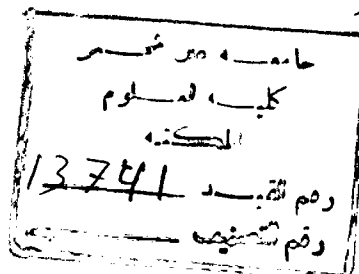 جامعــة عين شمــس
كليــة العــلوم
المكتبة
رقم القيــد 13741
رقم التصنيف